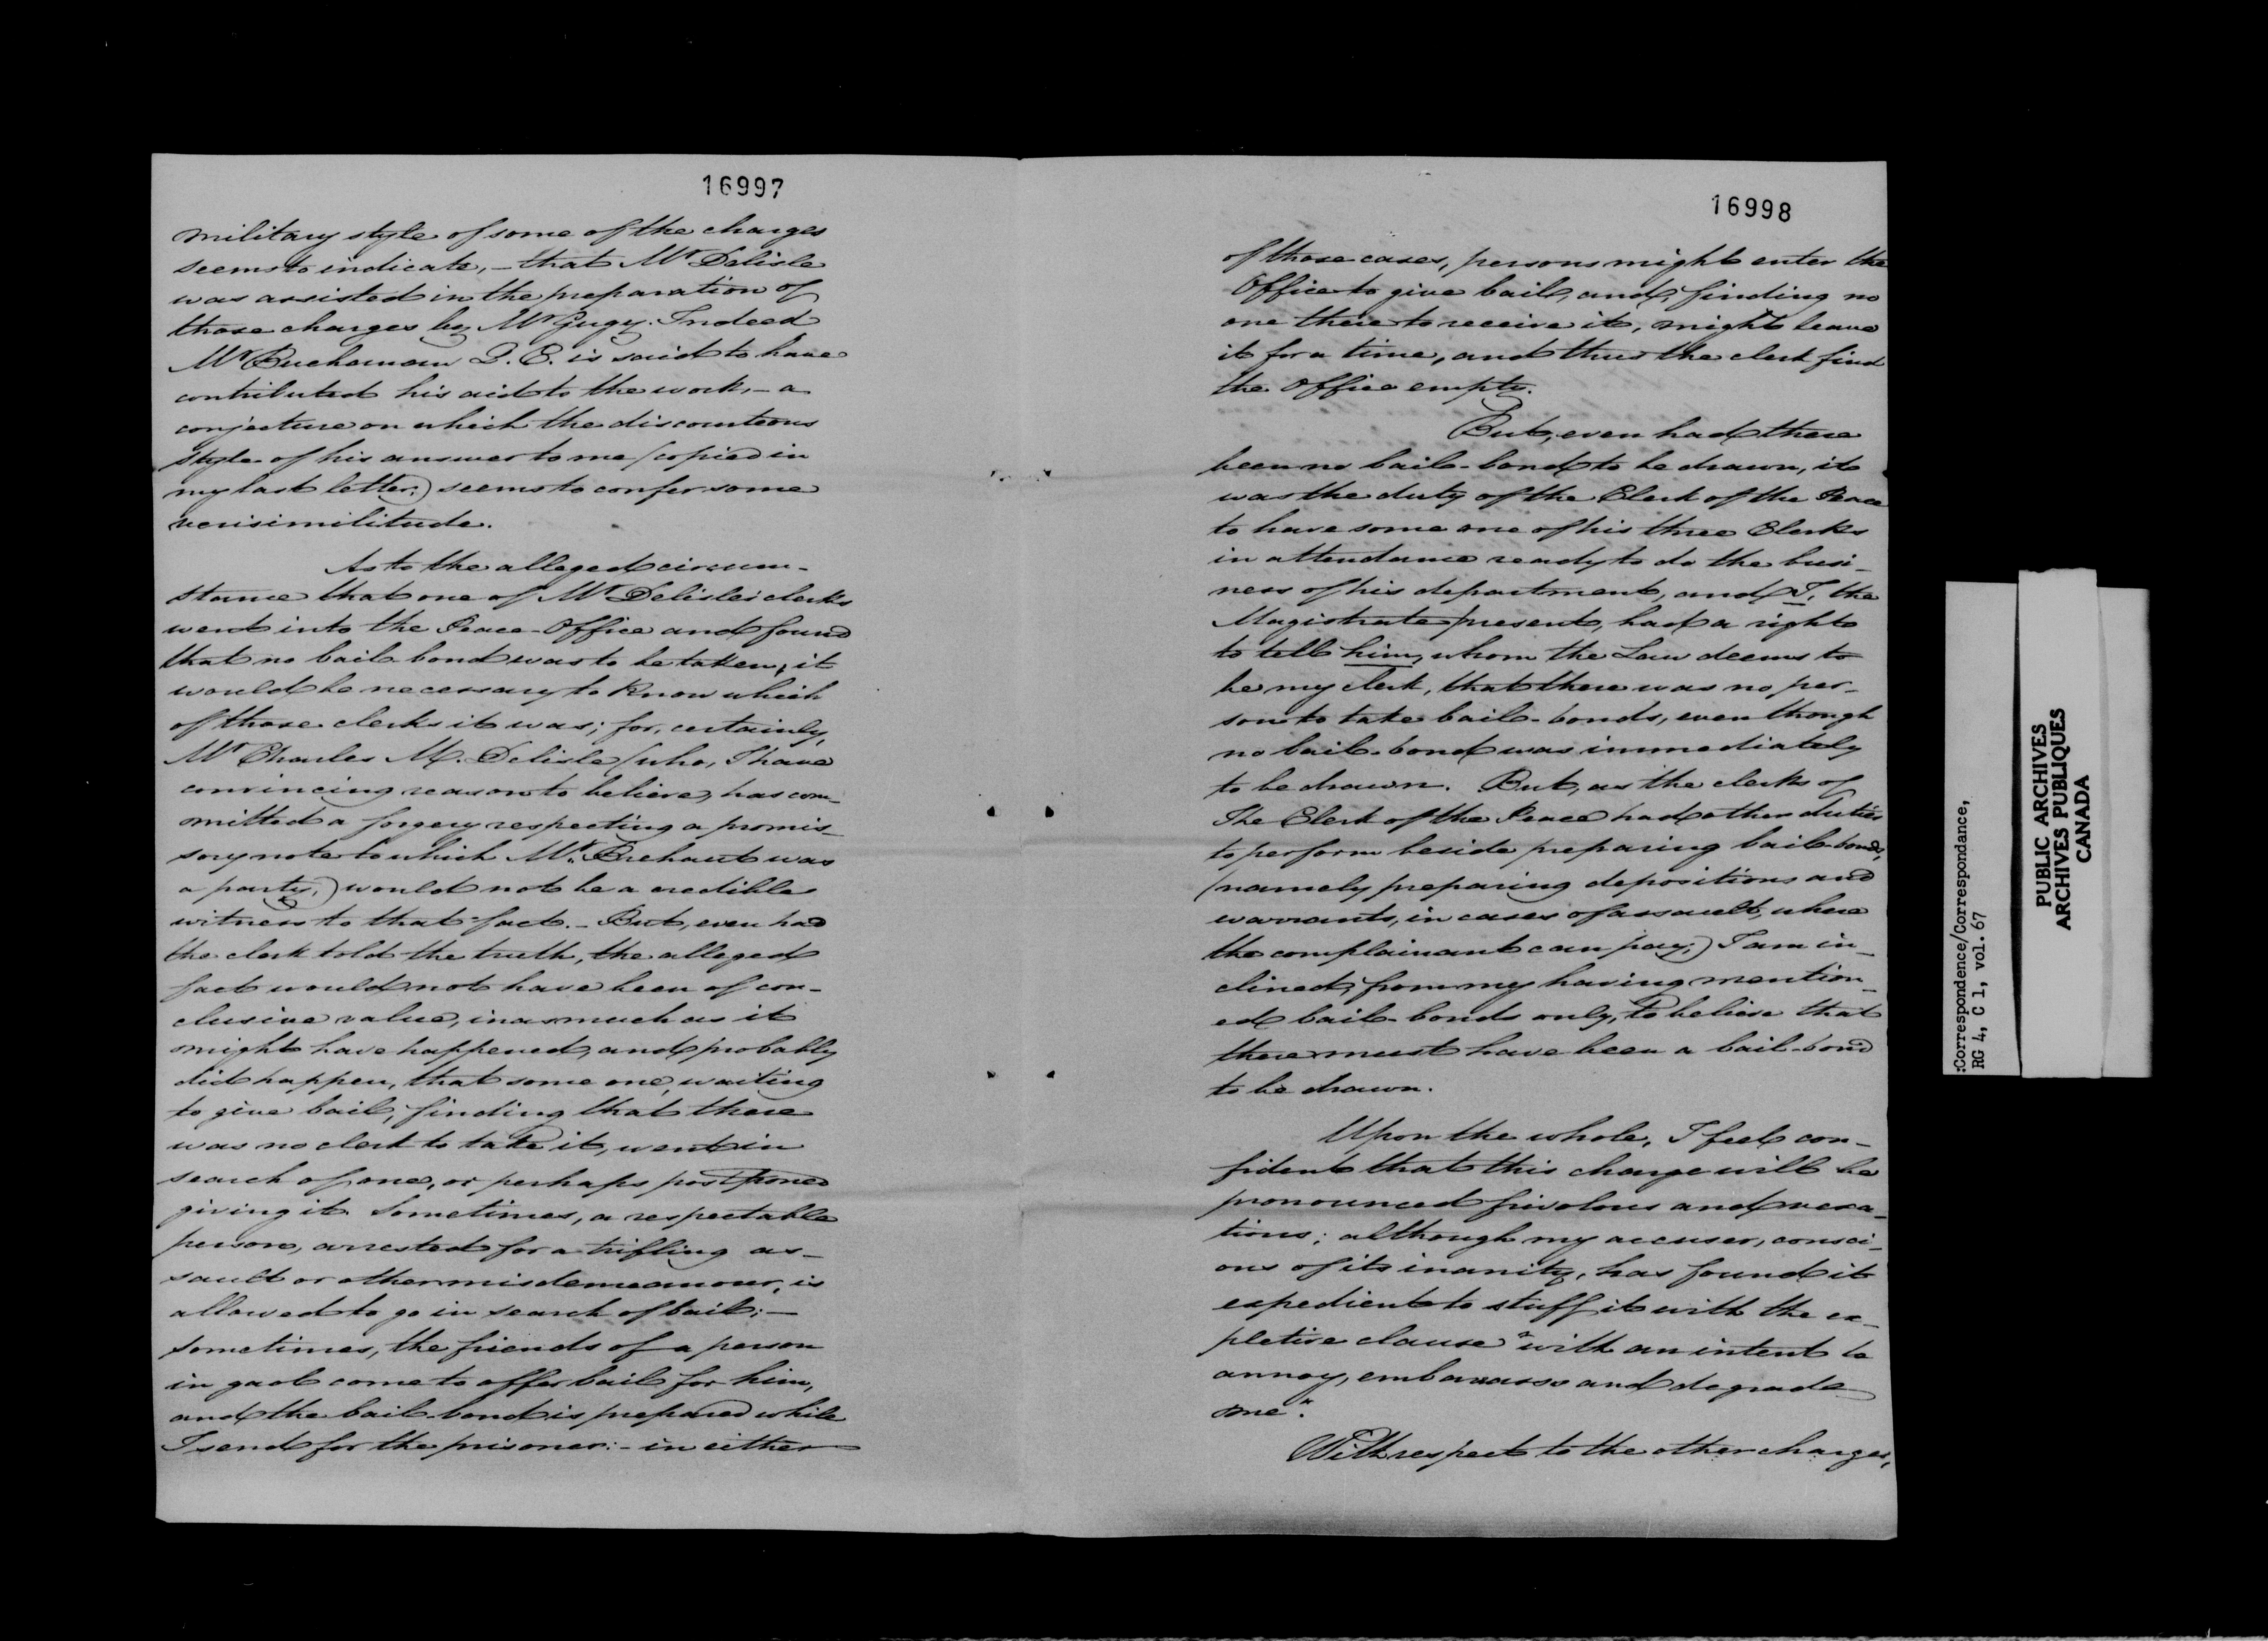 16997
military style of some of the charges
seems to indicate, - that Mr Delisle
was assisted in the preparation of
those charges by Mr Gugy. Indeed
Mr Buchanan Q. C. is said to have
contributed his aid to the work, - a
conjecture on which the discourteous
style of his answer to me (copied in
my last letter,) seems to confer some
verisimilitude.
As to the alleged circum-
stance that one of Mr Delisle's clerks
went into the Peace-Office and found
that no bail bond was to be taken, it
would be necessary to know which
of those clerks it was; for, certainly,
Mr Charles M. Delisle (who, I have
convincing reason to believe, has com-
mitted a forgery respecting a promis-
sory note to which Mr. Brehaut was
a party,) would not be a credible
witness to that fact. - But, even had
the clerk told the truth, the alleged
fact would not have been of con-
clusive value, inasmuch as it
might have happened, and probably
did happen, that some one, waiting
to give bail, finding that there
was no clerk to take it, went in
search of one, or perhaps postponed
giving it. Sometimes, a respectable
person, arrested for a trifling as-
sault or other misdemeanour, is
allowed to go in search of bail; -
sometimes, the friends of a person
in gaol come to offer bail for him,
and the bail-bond is prepared while
I send for the prisoner: - in either
16998
of those cases, persons might enter the
Office to give bail, and, finding no
one there to receive it, might leave
it for a time, and thus the clerk find
the Office empty.
But, even had there
been no bail-bond to be drawn, it
was the duty of the Clerk of the Peace
to have some one of his three Clerks
in attendance ready to do the busi-
ness of his department, and I, the
Magistrate present, had a right
to tell him, whom the Law deems to
be my clerk, that there was no per-
son to take bail-bonds, even though
no bail-bond was immediately
to be drawn. But, as the clerks of
The Clerk of the Peace had other duties
to perform beside preparing bail-bonds,
(namely preparing depositions and
warrants, in cases of assault, where
the complainant can pay;) I am in-
clined, from my having mention-
ed bail-bonds only, to believe that
there must have been a bail-bond
to be drawn.
Upon the whole, I feel con-
fident that this charge will be
pronounced frivolous and vexa-
tious; although my accuser, consci-
ous of its inanity, has found it
expedient to stuff it with the ex-
pletive clause "with an intent to
annoy, embarrass and degrade
me".
With respect to the other charges,
:Correspondence/Correspondance,
RG 4, C 1, vol. 67
PUBLIC ARCHIVES
ARCHIVES PUBLIQUES
CANADA